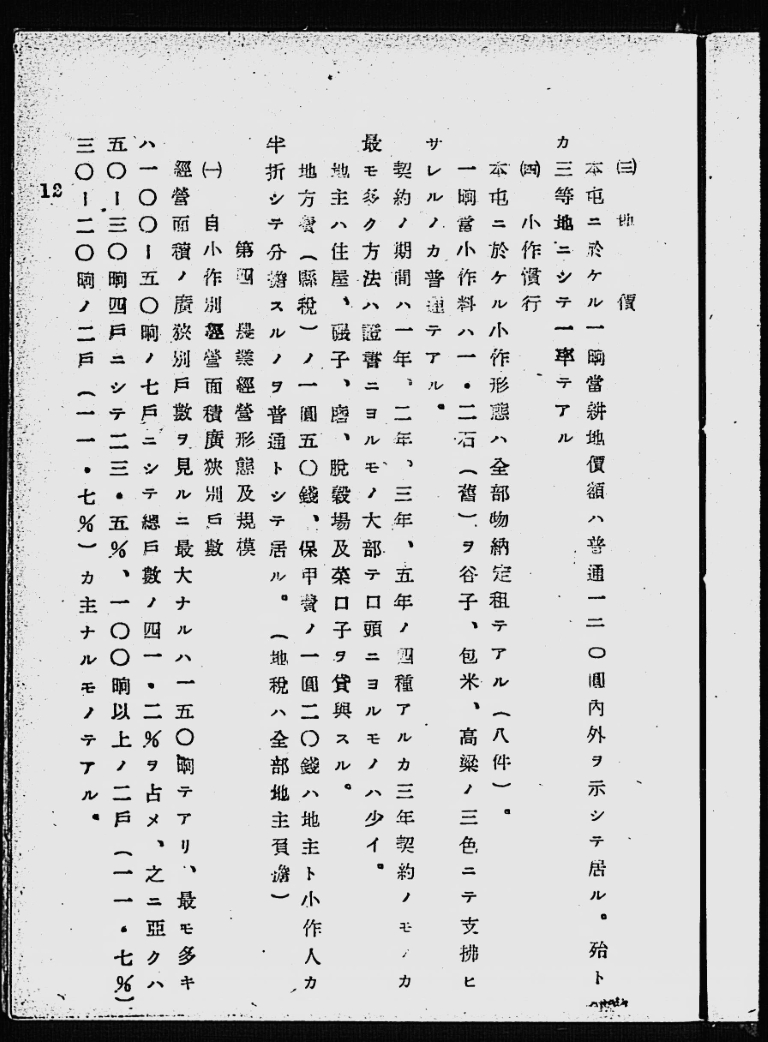 ㈢ 地價
本屯ニ於ケル一晌當耕地價額ハ普通一二〇圓內外ヲ示シテ居ル。殆ト
カ三等地ニシテ一率テアル
㈣ 小作慣行
本屯ニ於ケル小作形態ハ全部物納定租テアル(八件)。
一晌當小作料ハ一・二石(舊)ヲ谷子、包米、高粱ノ三色ニテ支拂ヒ
サレルノカ普通テアル。
契約ノ期間ハ一年、二年、三年、五年ノ四種アルカ三年契約ノモノカ
最モ多ク方法ハ證書ニヨルモノ大部テ口頭ニヨルモノハ少イ。
地主ハ住屋、碾子、磨、脫穀場及菜口子ヲ貸與スル。
地方費(縣稅)ノ一圓五〇錢、保甲費ノ一圓二〇錢ハ地主ト小作人カ
半折シテ分擔スルノヲ普通トシテ居ル。(地稅ハ全部地主負擔)
第四 農業經營形態及規模
㈠ 自小作別經營面積廣狹別戶數
經營面積ノ廣狹別戶數ヲ見ルニ最大ナルハ一五〇晌テアリ、最モ多キ
ハ一〇〇ー五〇晌ノ七戶ニシテ總戶數ノ四一・二%ヲ占メ、之ニ亞クハ
五〇ー三〇晌四戶ニシテ二三・五%、一〇〇晌以上ノ二戶(一一・七%)
三〇ー二〇晌ノ二戶(一一・七%)カ主ナルモノテアル。
12